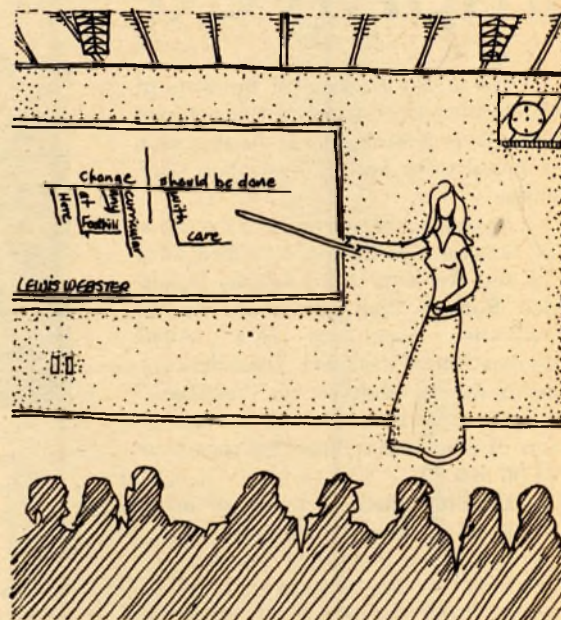 change should be done
Here
at
Foothill
any
curricular
with
care
LEWIS WEBSTER